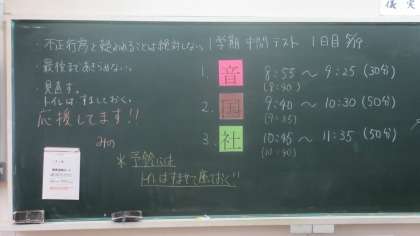 ・不正行為と疑われることは絶対しない。
1学期 中間テスト 1日目 5/19
・最後まであきらめない。
・見直す。
トイレはすましておく。
応援してます!!
1. 音 8:55 ～ 9:25 (30分)
(8:50)
2. 国 9:40 ～ 10:30 (50分)
(9:35)
3. 社 10:45 ～ 11:35 (50分)
(10:40)
※予鈴には
トイレはすませて座っておく